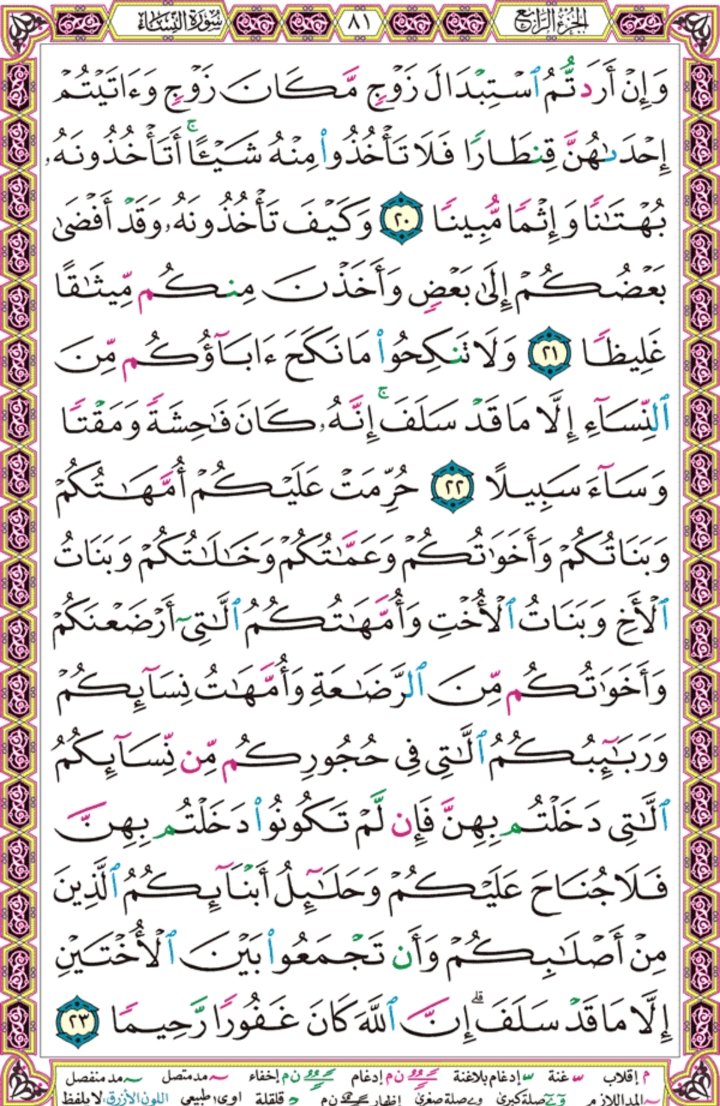 الجزء الرابع ٨١ سورة النساء
وَإِنْ أَرَدتُّمُ ٱسْتِبْدَالَ زَوْجٍ مَّكَانَ زَوْجٍ وَءَاتَيْتُمْ
إِحْدَىٰهُنَّ قِنطَارًا فَلَا تَأْخُذُوا۟ مِنْهُ شَيْـًٔا ۚ أَتَأْخُذُونَهُۥ
بُهْتَـٰنًا وَإِثْمًا مُّبِينًا ٢٠ وَكَيْفَ تَأْخُذُونَهُۥ وَقَدْ أَفْضَىٰ
بَعْضُكُمْ إِلَىٰ بَعْضٍ وَأَخَذْنَ مِنكُم مِّيثَـٰقًا
غَلِيظًا ٢١ وَلَا تَنكِحُوا۟ مَا نَكَحَ ءَابَآؤُكُم مِّنَ
ٱلنِّسَآءِ إِلَّا مَا قَدْ سَلَفَ ۚ إِنَّهُۥ كَانَ فَـٰحِشَةً وَمَقْتًا
وَسَآءَ سَبِيلًا ٢٢ حُرِّمَتْ عَلَيْكُمْ أُمَّهَـٰتُكُمْ
وَبَنَاتُكُمْ وَأَخَوَٰتُكُمْ وَعَمَّـٰتُكُمْ وَخَـٰلَـٰتُكُمْ وَبَنَاتُ
ٱلْأَخِ وَبَنَاتُ ٱلْأُخْتِ وَأُمَّهَـٰتُكُمُ ٱلَّـٰتِىٓ أَرْضَعْنَكُمْ
وَأَخَوَٰتُكُم مِّنَ ٱلرَّضَـٰعَةِ وَأُمَّهَـٰتُ نِسَآئِكُمْ
وَرَبَـٰٓئِبُكُمُ ٱلَّـٰتِى فِى حُجُورِكُم مِّن نِّسَآئِكُمُ
ٱلَّـٰتِى دَخَلْتُم بِهِنَّ فَإِن لَّمْ تَكُونُوا۟ دَخَلْتُم بِهِنَّ
فَلَا جُنَاحَ عَلَيْكُمْ وَحَلَـٰٓئِلُ أَبْنَآئِكُمُ ٱلَّذِينَ
مِنْ أَصْلَـٰبِكُمْ وَأَن تَجْمَعُوا۟ بَيْنَ ٱلْأُخْتَيْنِ
إِلَّا مَا قَدْ سَلَفَ ۗ إِنَّ ٱللَّهَ كَانَ غَفُورًا رَّحِيمًا ٢٣
م إقلاب غنة إدغام بلاغنة ن م إدغام ن م إخفاء مد متصل مد منفصل
المد اللازم صلة كبرى صلة صغرى إظهار ن م قلقلة اوى؛ طبيعي اللون الأزرق، لا يلفظ